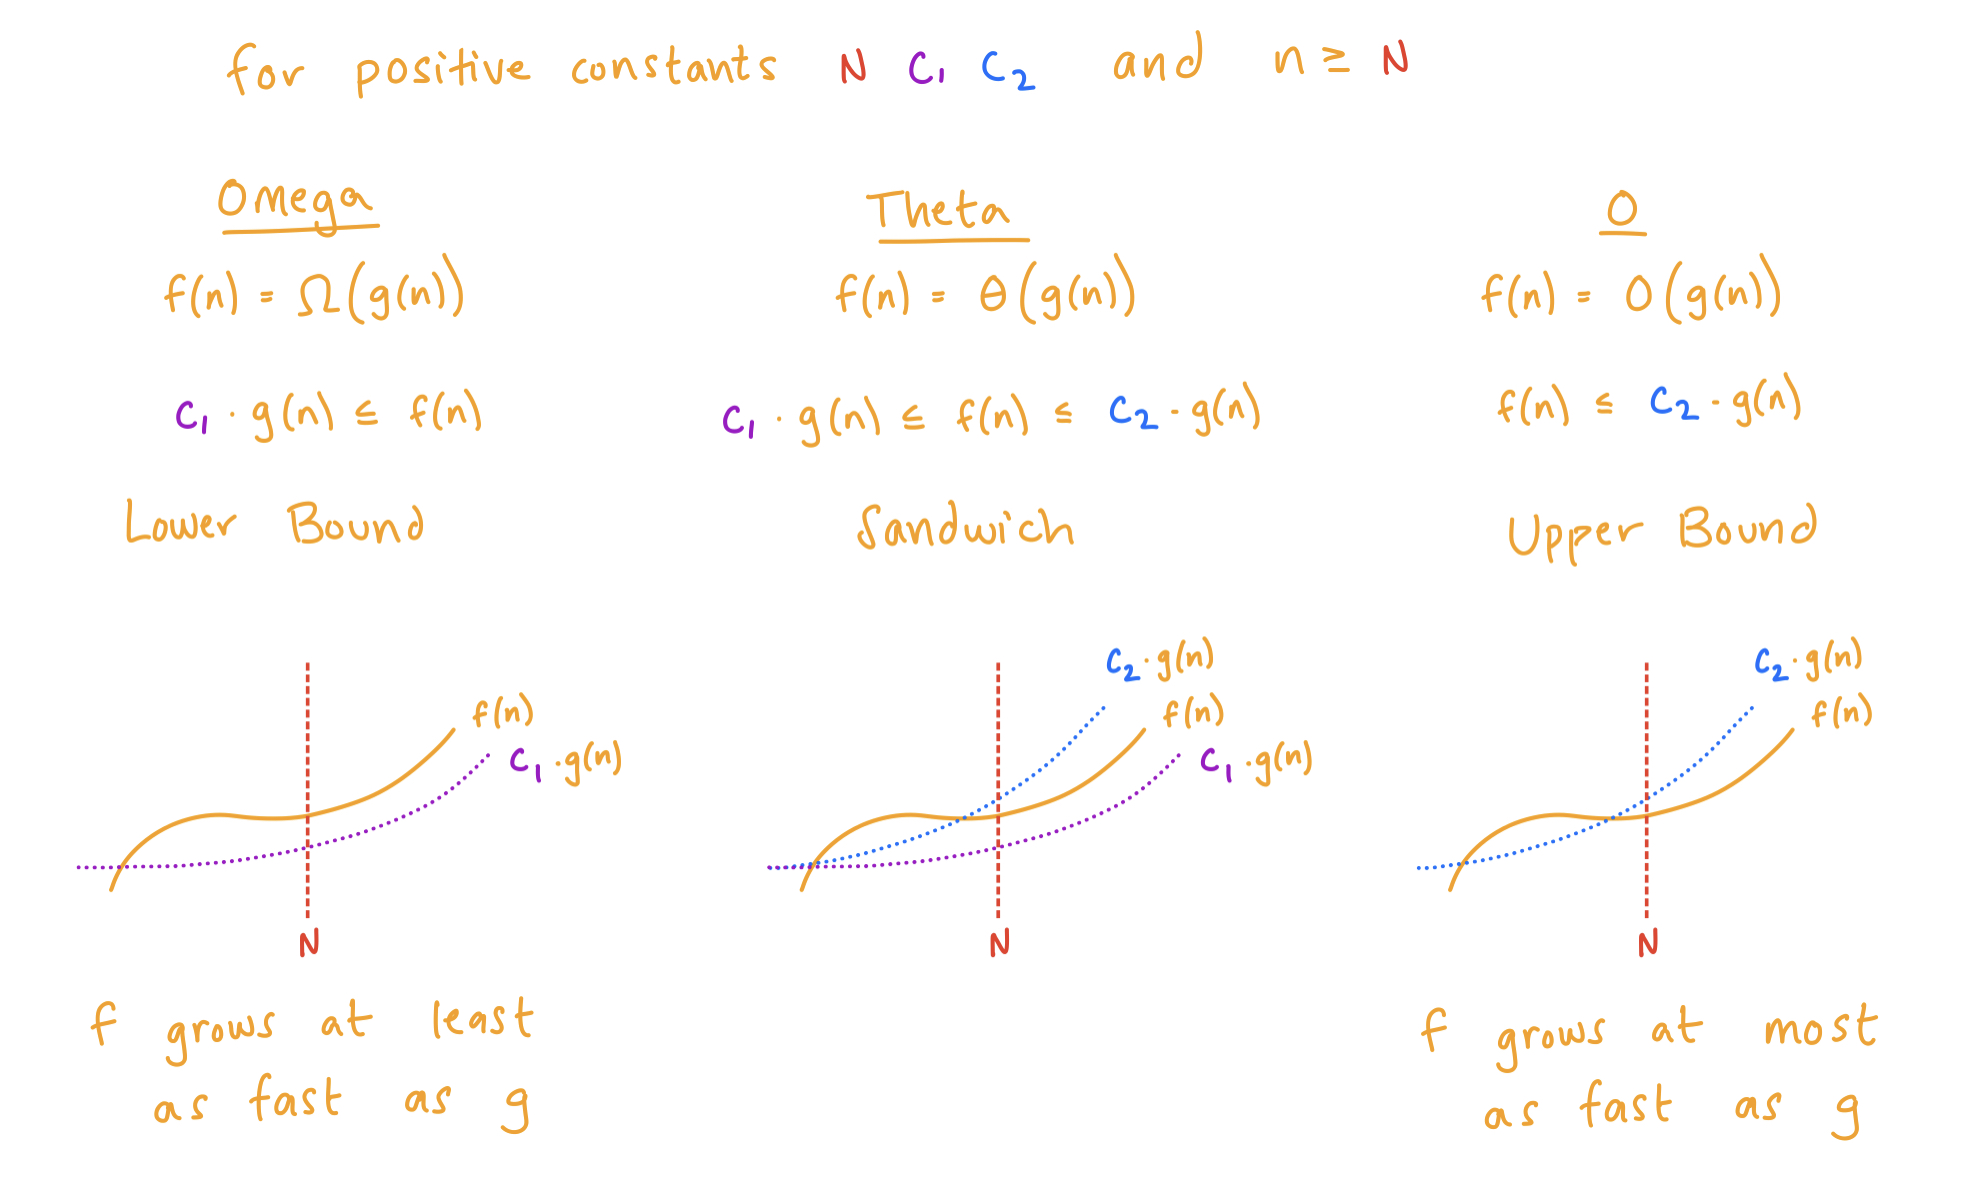 for positive constants N C₁ C₂ and n ≥ N
Omega
f(n) = Ω(g(n))
C₁ · g(n) ≤ f(n)
Lower Bound
f(n)
C₁ · g(n)
N
f grows at least
as fast as g
Theta
f(n) = Θ(g(n))
C₁ · g(n) ≤ f(n) ≤ C₂ · g(n)
Sandwich
C₂ · g(n)
f(n)
C₁ · g(n)
N
O
f(n) = O(g(n))
f(n) ≤ C₂ · g(n)
Upper Bound
C₂ · g(n)
f(n)
N
f grows at most
as fast as g